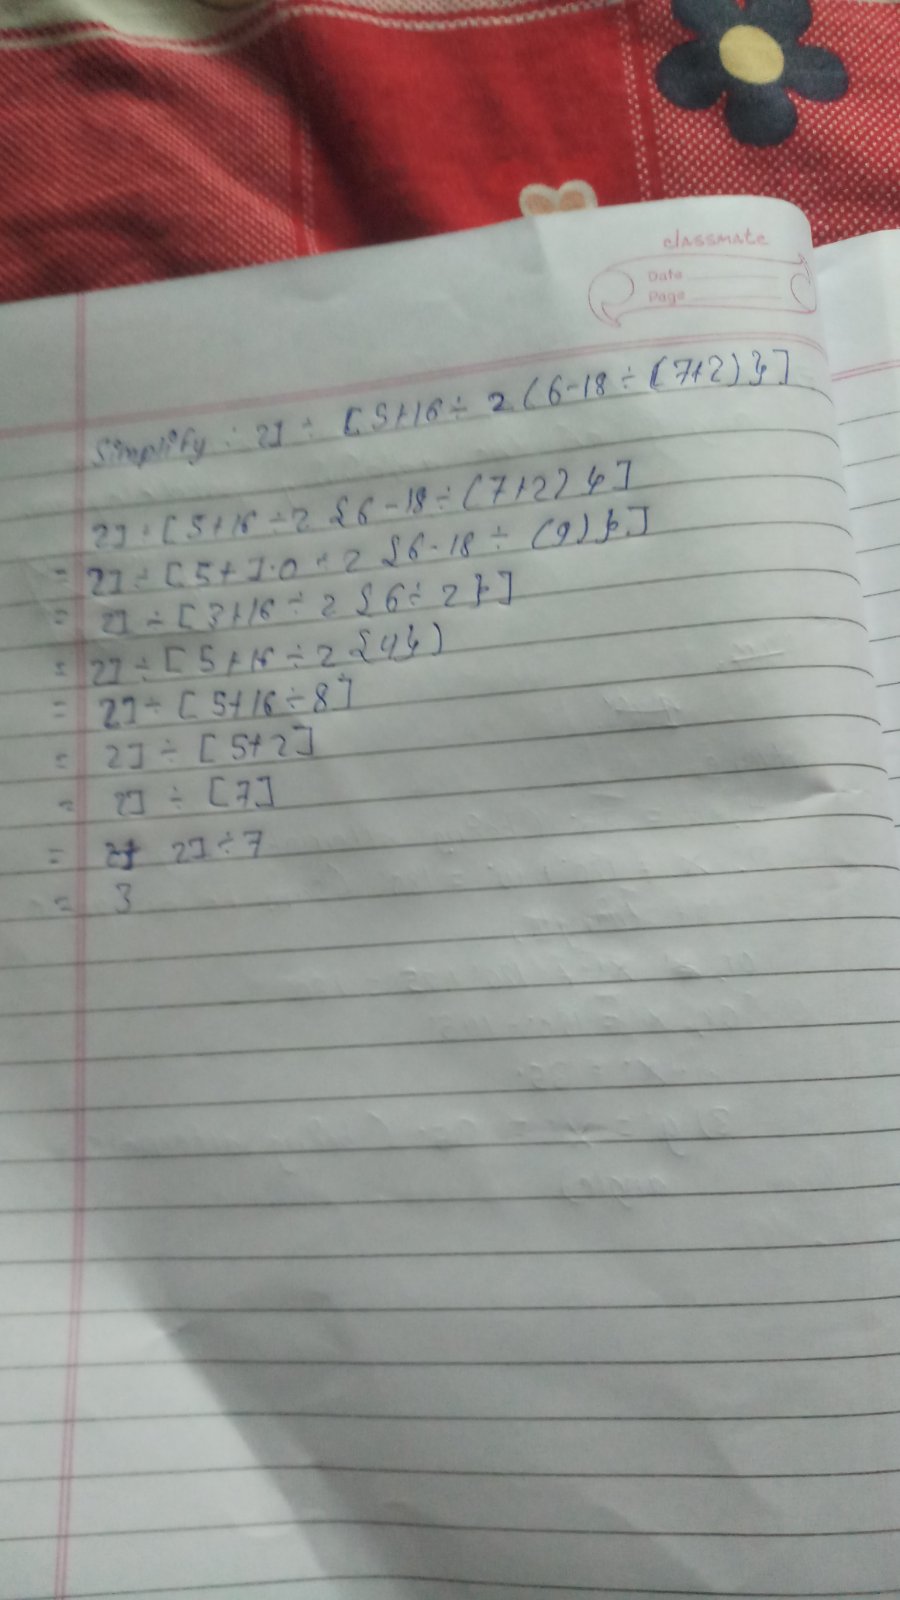 classmate
Date
Page
Simplify : 21 ÷ [5+16 ÷ 2 (6-18 ÷ (7+2)}]
21 ÷ [5+16 ÷ 2 {6-18 ÷ (7+2)}]
= 21 ÷ [5+10 ÷ 2 {6-18 ÷ (9)}]
= 21 ÷ [3+16 ÷ 2 {6 ÷ 2}]
= 21 ÷ [5+16 ÷ 2 {4})
= 21 ÷ [5+16 ÷ 8]
= 21 ÷ [5+2]
= 21 ÷ [7]
= 21 ÷ 7
= 3